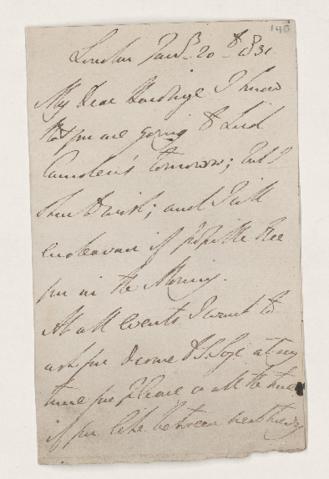 140
London Jany. 20th 1831
My dear Hardinge I know
that you are going to Lord
Camden's tomorrow; but I
and I will
endeavour if possible to see
you in the Morning.
At all events I want to
ask you to come to S. Saye at any
time you please or all the time
if you like between next